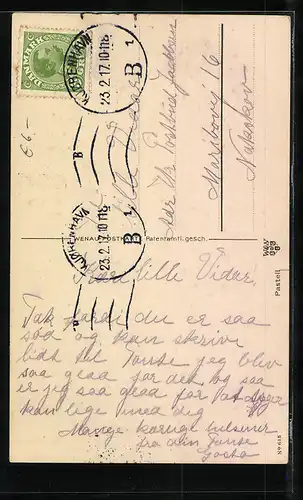 DANMARK
KJØBENHAVN
23.2.17.10-11 F.
B
1
KJØBENHAVN
23.2.17.10-11 F.
B
1
B
B
Lille
Maribovej 16
Nakskov
WENAU POSTKARTE Patentamtl. gesch.
Pastell
Kære lille Vidar.
Tak fordi du er saa
sød og kan skrive
lidt til Tante jeg bliv
saa glad for det og saa
er jeg saa glad for at
kan lige med dig
Mange kærlige hilsner
fra din Tante
Gosta